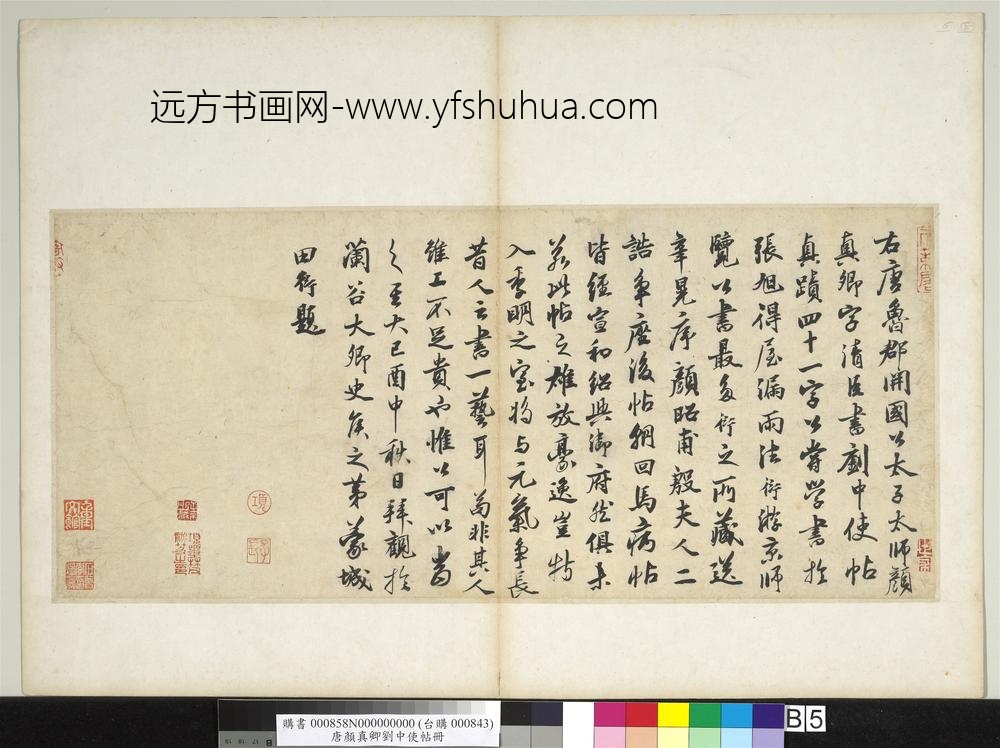 远方书画网-www.yfshuhua.com
右唐魯郡開國公太子太師顏
真卿字清臣書劉中使帖
真蹟四十一字公嘗學書於
張旭得屋漏雨法衍游京師
覽公書最多衍之所藏送
辛晃序顏昭甫殷夫人二
誥爭座後帖綱回馬病帖
皆經宣和紹興御府然俱未
若此帖之雄放豪逸豈特
入季明之室將與元氣爭長
昔人云書一藝耳苟非其人
雖工不足貴也惟公可以當
之至大己酉中秋日拜觀於
蘭谷大卿史侯之第蒙城
田衍題
項
購書 000858N000000000 (台購 000843)
唐顏真卿劉中使帖冊
B 17 18 19
B5